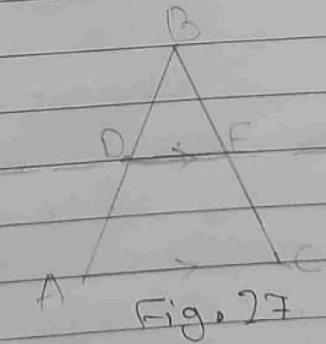 B
D E
A C
Fig. 27